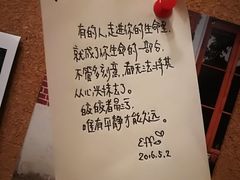 有的人，走进你的生命里，
就成了你生命的一部分，
不管多刻意，都无法将其
从心快抹去了。
皎皎者易污，
唯有平静才能久远。
2016.5.2